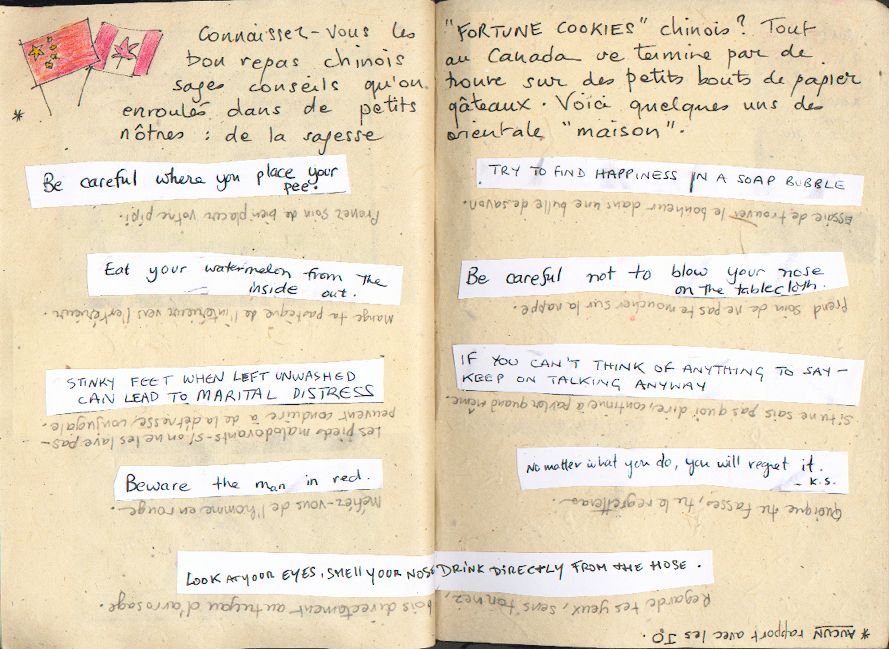 Connaissez-vous les "FORTUNE COOKIES" chinois? Tout
bon repas chinois au Canada se termine par de
sages conseils qu'on trouve sur des petits bouts de papier
* enroulés dans de petits gâteaux. Voici quelques uns des
nôtres : de la sagesse orientale "maison".
Be careful where you place your
pee.
Prenez soin de bien placer votre pipi.
Eat your watermelon from the
inside out.
Mange ta pastèque de l'intérieur vers l'extérieur.
STINKY FEET WHEN LEFT UNWASHED
CAN LEAD TO MARITAL DISTRESS
Les pieds malodorants - si on ne les lave pas -
peuvent conduire à de la détresse conjugale.
Beware the man in red.
Méfiez-vous de l'homme en rouge.
TRY TO FIND HAPPINESS IN A SOAP BUBBLE
Essaie de trouver le bonheur dans une bulle de savon.
Be careful not to blow your nose
on the tablecloth.
Prend soin de ne pas te moucher sur la nappe.
IF YOU CAN'T THINK OF ANYTHING TO SAY -
KEEP ON TALKING ANYWAY
Si tu ne sais pas quoi dire, continue à parler quand même.
No matter what you do, you will regret it.
- K.S.
Quoique tu fasses, tu le regretteras.
LOOK AT YOUR EYES, SMELL YOUR NOSE DRINK DIRECTLY FROM THE HOSE.
Regarde tes yeux, sens ton nez, bois directement au tuyau d'arrosage.
* AUCUN rapport avec les J.O.